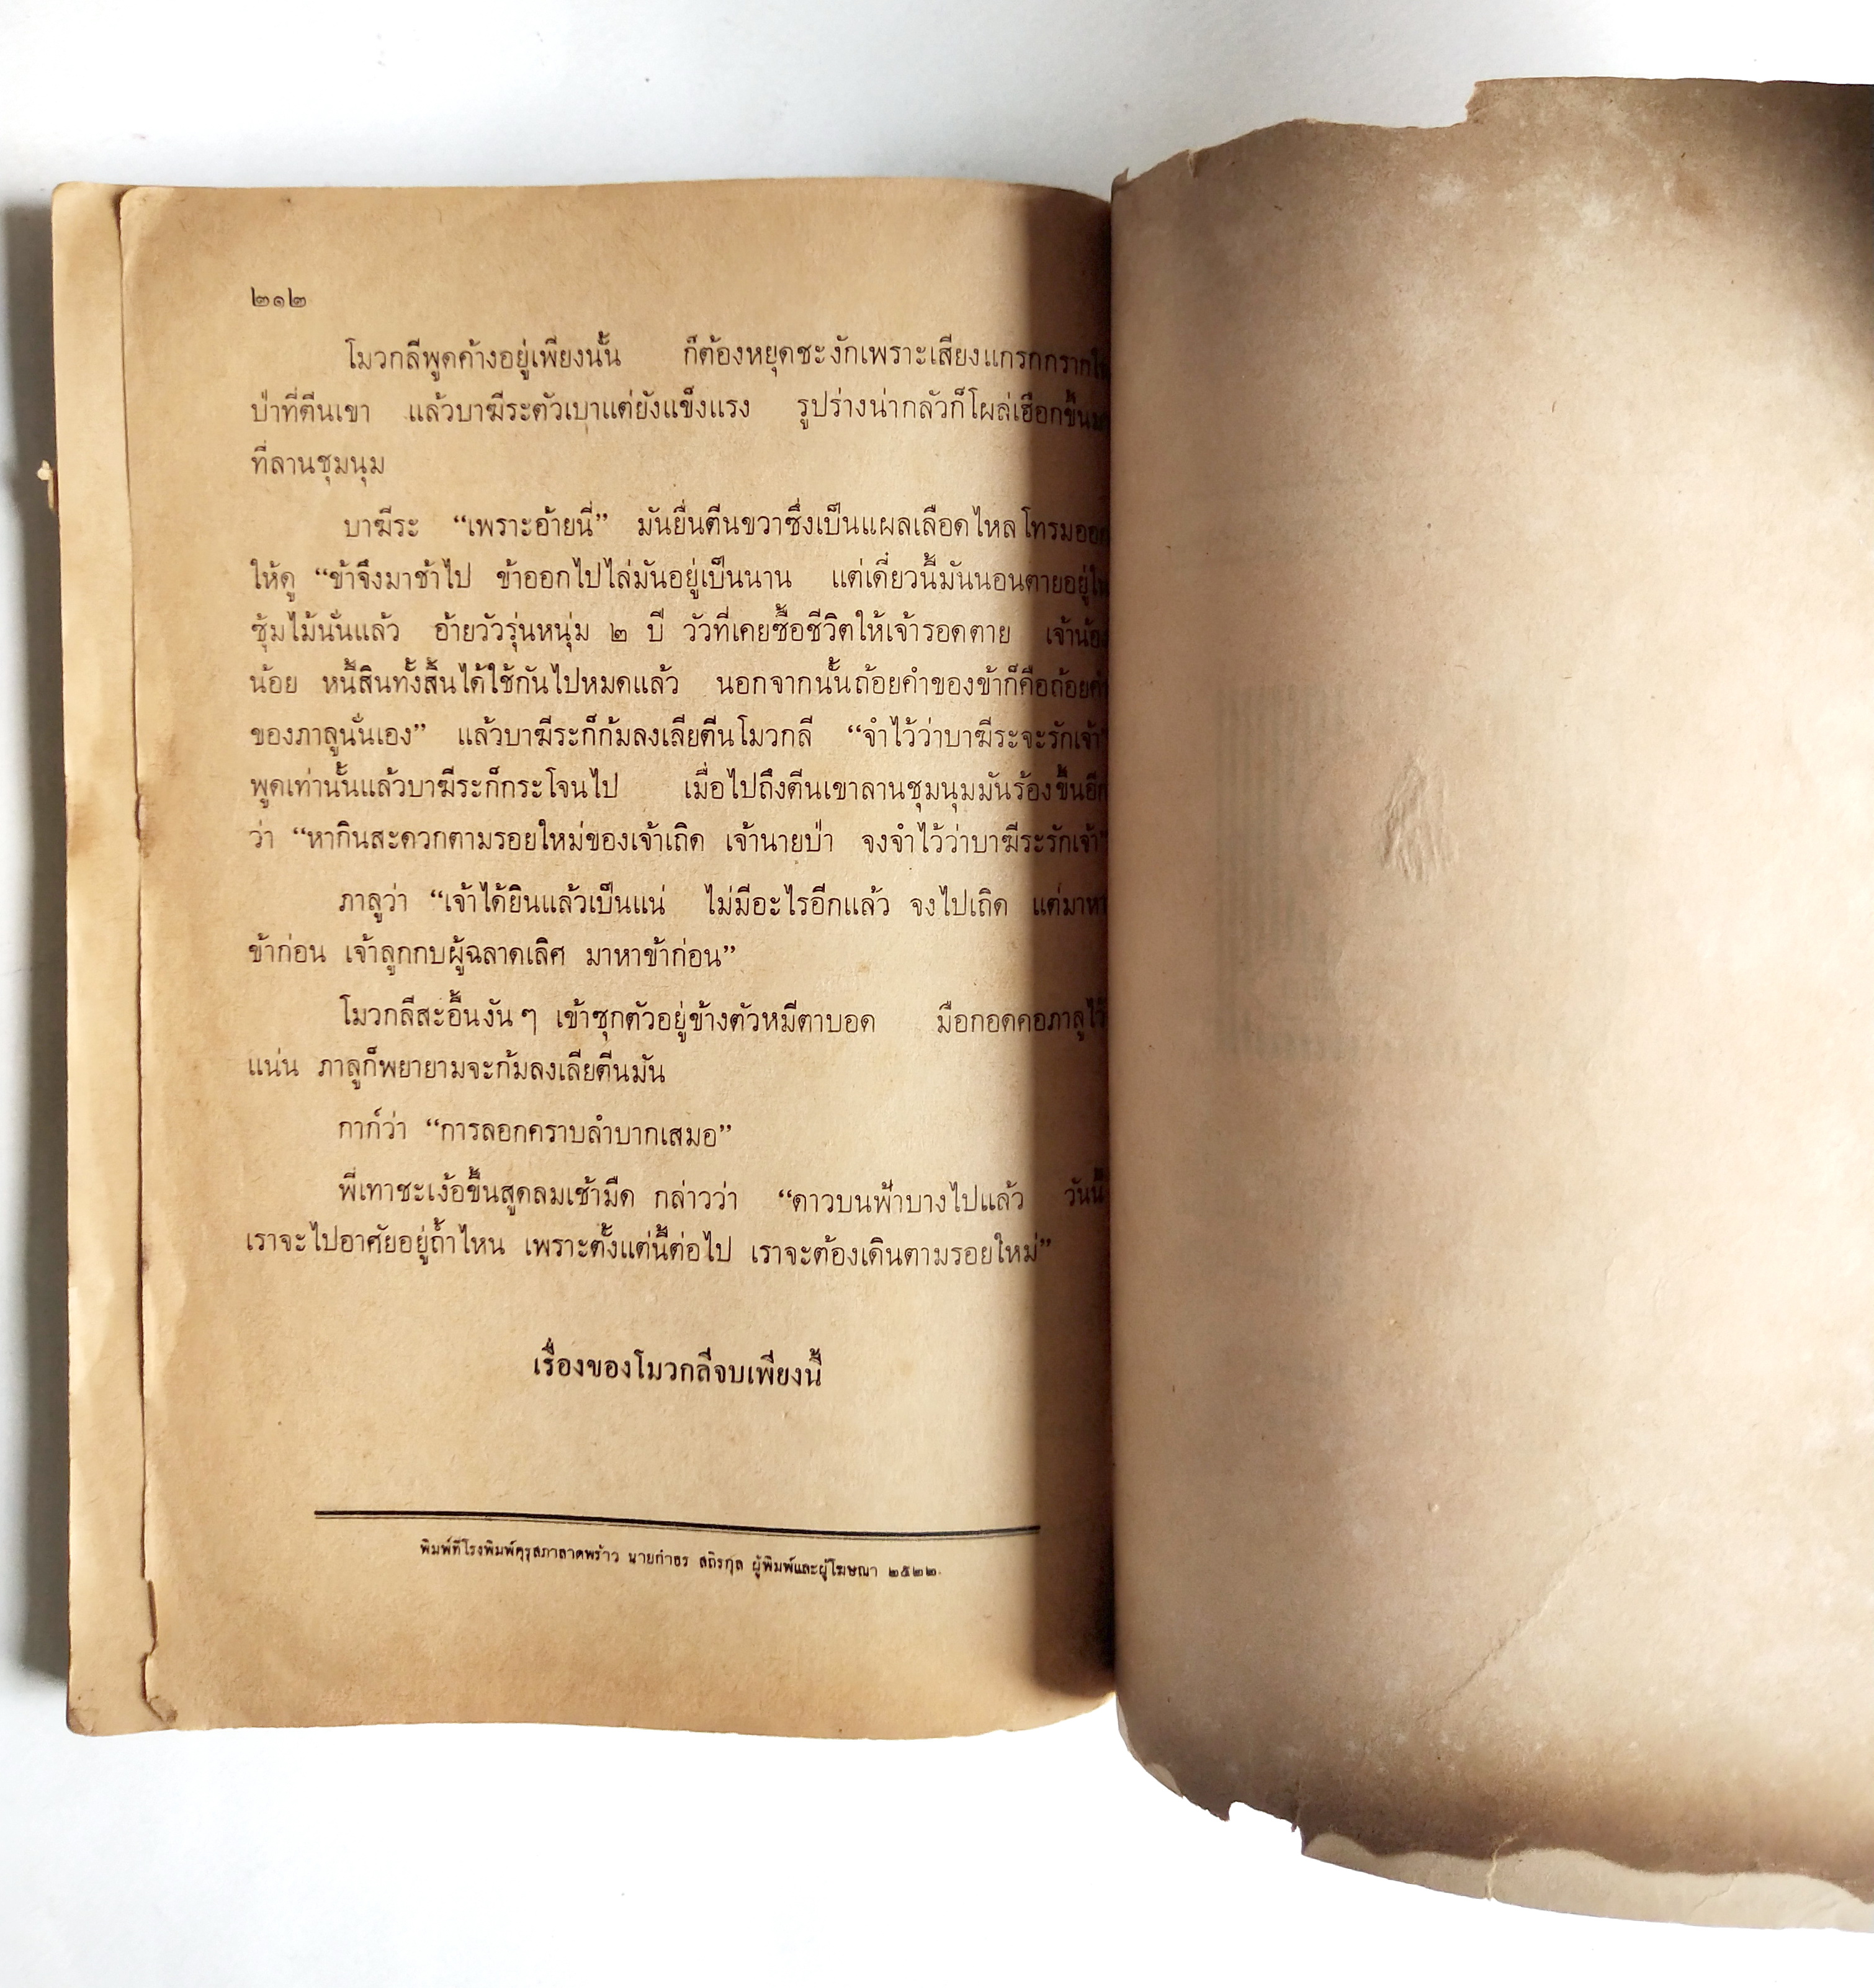 ๒๑๒
โมวกลีพูดค้างอยู่เพียงนั้น ก็ต้องหยุดชะงักเพราะเสียงแกรกกราก
ป่าที่ตีนเขา แล้วบาฆีระตัวเบาแต่ยังแข็งแรง รูปร่างน่ากลัวก็โผล่เฮือกขึ้น
ที่ลานชุมนุม
บาฆีระ “เพราะอ้ายนี่” มันยื่นตีนขวาซึ่งเป็นแผลเลือดไหลโทรม
ให้ดู “ข้าจึงมาช้าไป ข้าออกไปไล่มันอยู่เป็นนาน แต่เดี๋ยวนี้มันนอนตายอยู่
ซุ้มไม้นั่นแล้ว อ้ายวัวรุ่นหนุ่ม ๒ ปี วัวที่เคยซื้อชีวิตให้เจ้ารอดตาย
น้อย หนี้สินทั้งสิ้นได้ใช้กันไปหมดแล้ว นอกจากนั้นถ้อยคำของข้าก็คือถ้อยคำ
ของภาลูนั่นเอง” แล้วบาฆีระก็ก้มลงเลียตีนโมวกลี “จำไว้ว่าบาฆีระจะรักเจ้า”
พูดเท่านั้นแล้วบาฆีระก็กระโจนไป เมื่อไปถึงตีนเขาลานชุมนุมมันร้องขึ้น
ว่า “หากินสะดวกตามรอยใหม่ของเจ้าเถิด เจ้านายป่า จงจำไว้ว่าบาฆีระรักเจ้า”
ภาลูว่า “เจ้าได้ยินแล้วเป็นแน่ ไม่มีอะไรอีกแล้ว จงไปเถิด แต่มาหา
ข้าก่อน เจ้าลูกกบผู้ฉลาดเลิศ มาหาข้าก่อน”
โมวกลีสะอื้นงันๆ เข้าซุกตัวอยู่ข้างตัวหมีตาบอด มือกอดคอภาลูไว้
แน่น ภาลูก็พยายามจะก้มลงเลียตีนมัน
กาก์ว่า “การลอกคราบลำบากเสมอ”
พี่เทาชะเง้อขึ้นสูดลมเช้ามืด กล่าวว่า “ดาวบนฟ้าบางไปแล้ว วันนี้
เราจะไปอาศัยอยู่ถ้ำไหน เพราะตั้งแต่นี้ต่อไป เราจะต้องเดินตามรอยใหม่”
เรื่องของโมวกลีจบเพียงนี้
พิมพ์ที่โรงพิมพ์คุรุสภาลาดพร้าว นายกำธร สถิรกุล ผู้พิมพ์และผู้โฆษณา ๒๕๒๒